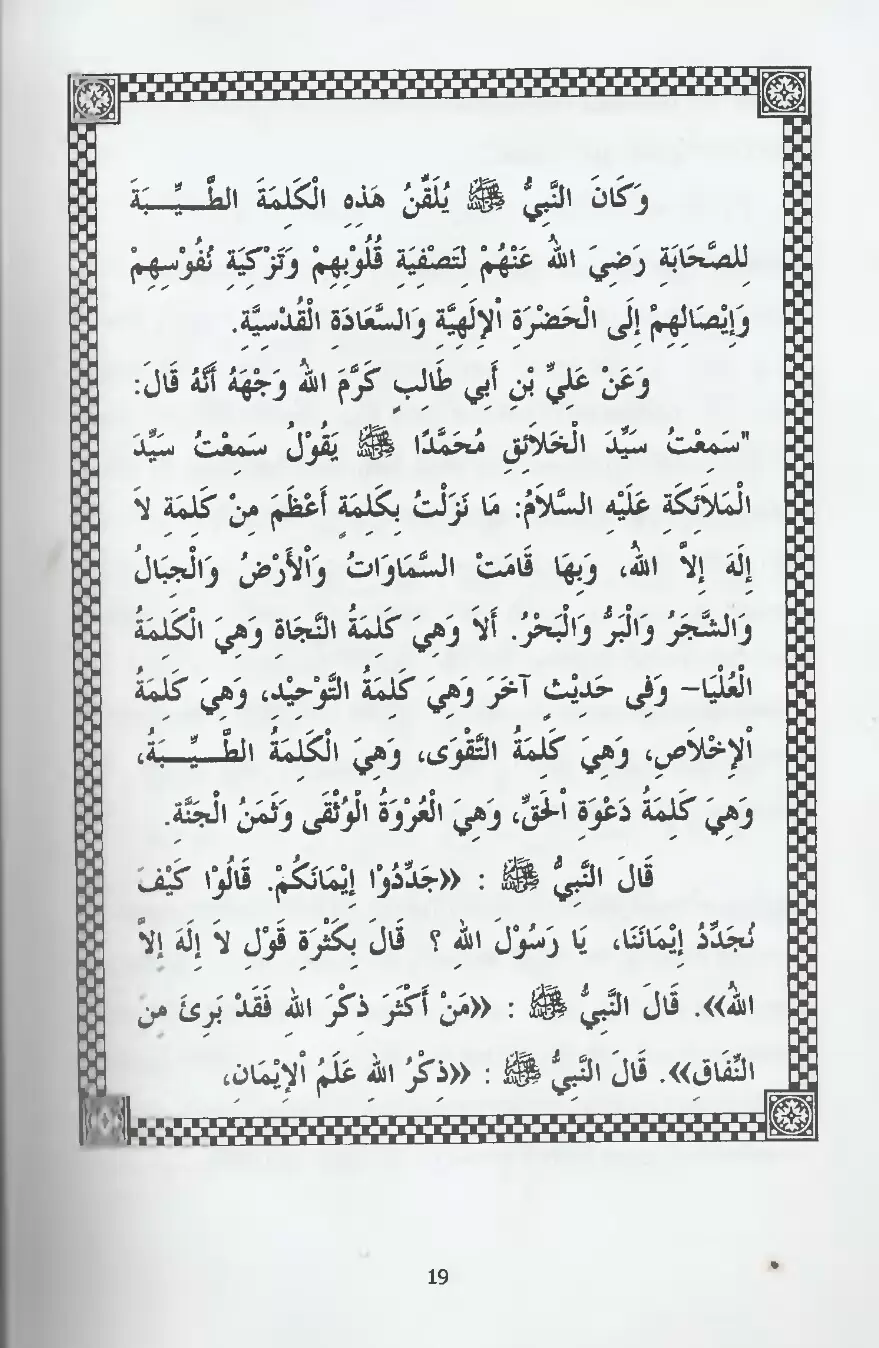 وَكَانَ النَّبِيُّ ﷺ يُلَقِّنُ هَذِهِ الْكَلِمَةَ الطَّـــيِّـــبَةَ
لِلصَّحَابَةِ رَضِيَ اللهُ عَنْهُمْ لِتَصْفِيَةِ قُلُوْبِهِمْ وَتَزْكِيَةِ نُفُوْسِهِمْ
وَإِيْصَالِهِمْ إِلَى الْحَضْرَةِ اْلإِلَهِيَّةِ وَالسَّعَادَةِ الْقُدْسِيَّةِ.
وَعَنْ عَلِيِّ بْنِ أَبِي طَالِبٍ كَرَّمَ اللهُ وَجْهَهُ أَنَّهُ قَالَ:
"سَمِعْتُ سَيِّدَ الْخَلاَئِقِ مُحَمَّدًا ﷺ يَقُوْلُ سَمِعْتُ سَيِّدَ
الْمَلاَئِكَةِ عَلَيْهِ السَّلاَمُ: مَا نَزَلْتُ بِكَلِمَةٍ أَعْظَمَ مِنْ كَلِمَةِ لاَ
إِلَهَ إِلاَّ اللهُ، وَبِهَا قَامَتْ السَّمَاوَاتُ وَاْلأَرْضُ وَالْجِبَالُ
وَالشَّجَرُ وَالْبَرُّ وَالْبَحْرُ. أَلاَ وَهِيَ كَلِمَةُ النَّجَاةِ وَهِيَ الْكَلِمَةُ
الْعُلْيَا– وَفِى حَدِيْثٍ آخَرَ وَهِيَ كَلِمَةُ التَّوْحِيْدِ، وَهِيَ كَلِمَةُ
اْلإِخْلاَصِ، وَهِيَ كَلِمَةُ التَّقْوَى، وَهِيَ الْكَلِمَةُ الطَّـــيِّـــبَةُ،
وَهِيَ كَلِمَةُ دَعْوَةِ اْلحَقِّ، وَهِيَ الْعُرْوَةُ الْوُثْقَى وَثَمَنُ الْجَنَّةِ.
قَالَ النَّبِيُّ ﷺ : «جَدِّدُوْا إِيْمَانَكُمْ. قَالُوْا كَيْفَ
نُجَدِّدُ إِيْمَانَنَا، يَا رَسُوْلَ اللهِ ؟ قَالَ بِكَثْرَةِ قَوْلِ لاَ إِلَهَ إِلاَّ
اللهُ». قَالَ النَّبِيُّ ﷺ : «مَنْ أَكْثَرَ ذِكْرَ اللهِ فَقَدْ بَرِئَ مِنَ
النِّفَاقِ». قَالَ النَّبِيُّ ﷺ : «ذِكْرُ اللهِ عَلَمُ اْلإِيْمَانِ،
19